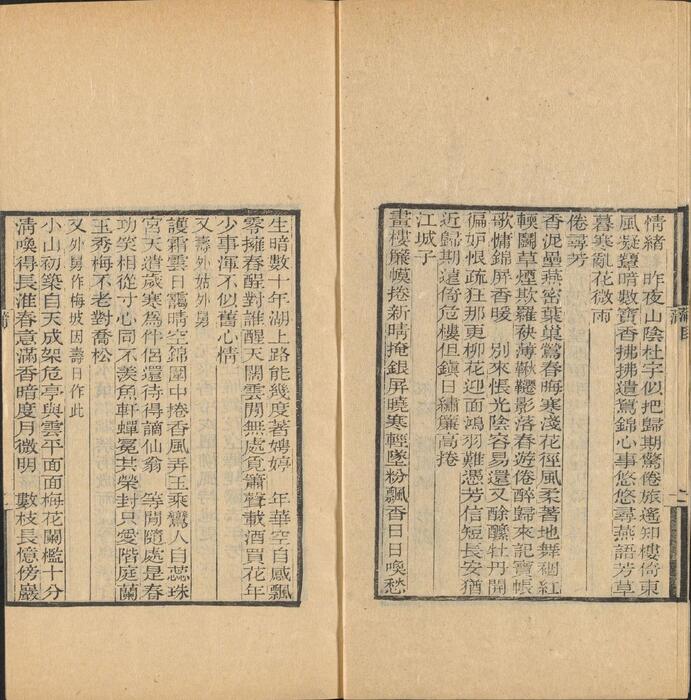 情緒　昨夜山陰杜宇似把歸期驚倦旅遙知樓倚東
風凝顰暗數寶香拂拂遺鴛錦心事悠悠尋燕語芳草
暮寒亂花微雨
倦尋芳
香泥壘燕密葉巢鶯春晦寒淺花徑風柔著地舞裀紅
輭鬬草煙欺羅袂薄鞦韆影落春遊倦醉歸來記寶帳
歌慵錦屏香暖　別來悵光陰容易還又酴醾牡丹開
徧妒恨疏狂那更柳花迎面鴻羽難憑芳信短長安猶
近歸期遠倚危樓但鎭日繡簾高捲
江城子
畫樓簾幙捲新晴掩銀屏曉寒輕墜粉飄香日日喚愁
生暗數十年湖上路能幾度著娉婷　年華空自感飄
零擁春酲對誰醒天闊雲閒無處覓簫聲載酒買花年
少事渾不似舊心情
又壽外姑外舅
護霜雲日靄晴空錦圍中捲香風弄玉乘鸞人自蕊珠
宮天遣歲寒爲伴侶還待得謫仙翁　等閒隨處是春
功笑相從寸心同不羨魚軒蟬冕其榮封只愛階庭蘭
玉秀梅不老對喬松
又外舅作梅坡因壽日作此
小山初築自天成架危亭與雲平面面梅花闌檻十分
淸喚得長淮春意滿香暗度月微明　數枝長憶傍巖